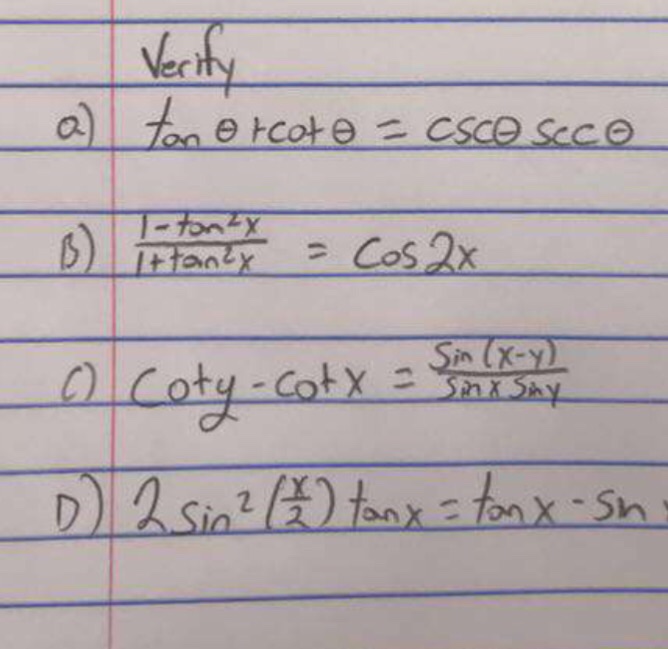 Verify
a) tan θ + cot θ = cscθ secθ
B) \frac{1-tan²x}{1+tan²x} = Cos 2x
C) Coty - cotx = \frac{Sin (x-y)}{Sin x Sin y}
D) 2 sin² (\frac{x}{2}) tanx = tanx - Sin